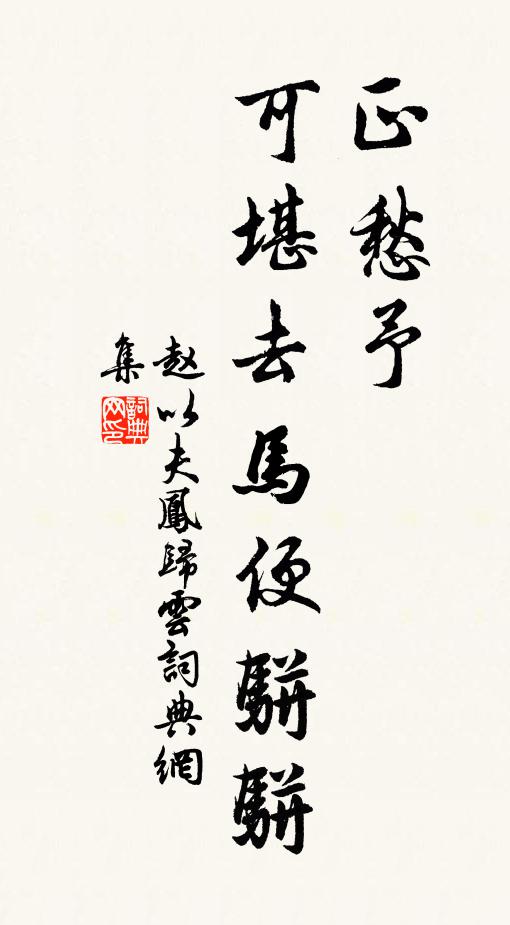 正愁予
可堪去馬便騈騈
赵以夫鳳歸雲詞典網
集
詞典
网印